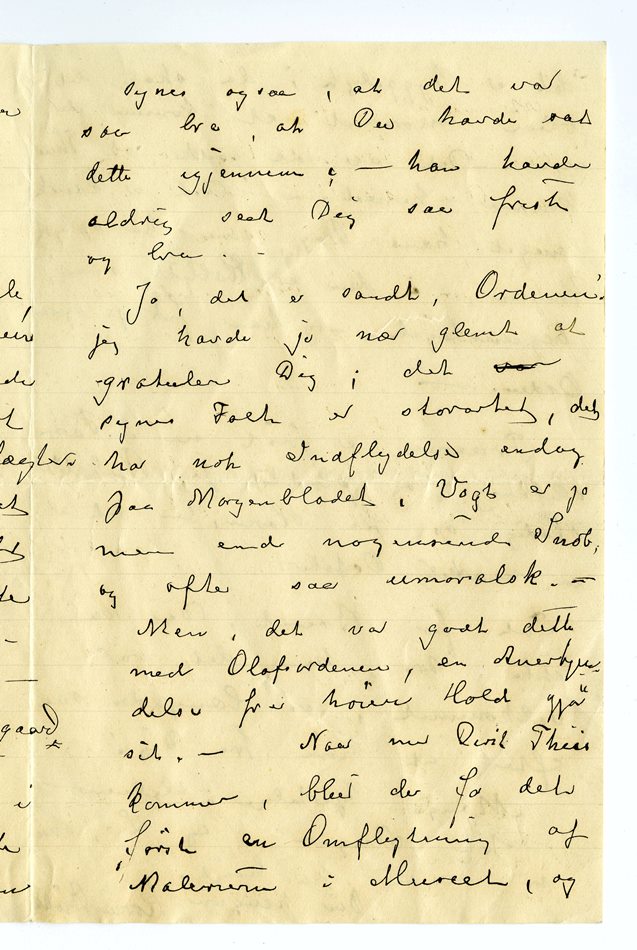 synes ogsaa, at det var
saa bra, at Du havde sat
dette igjennem; — han havde
aldrig seet Dig saa frisk
og bra. -
Jo, det er sandt, Ordenen!
jeg havde jo nær glemt at
gratulere Dig; det
synes Folk er storartet, det
har nok Indflydelse endog
paa Morgenbladet. Vogt er jo
mere end nogensinde Snob,
og ofte saa umoralsk. —
Men, det var godt dette
med Olafsordenen, en Anerkjen-
delse fra høiere Hold gjør
sit. — Naar nu Thiis
kommer, blir der jo det
første en Omflytning af
Malerierne i Museet, og
le,
de
et
gaard
i